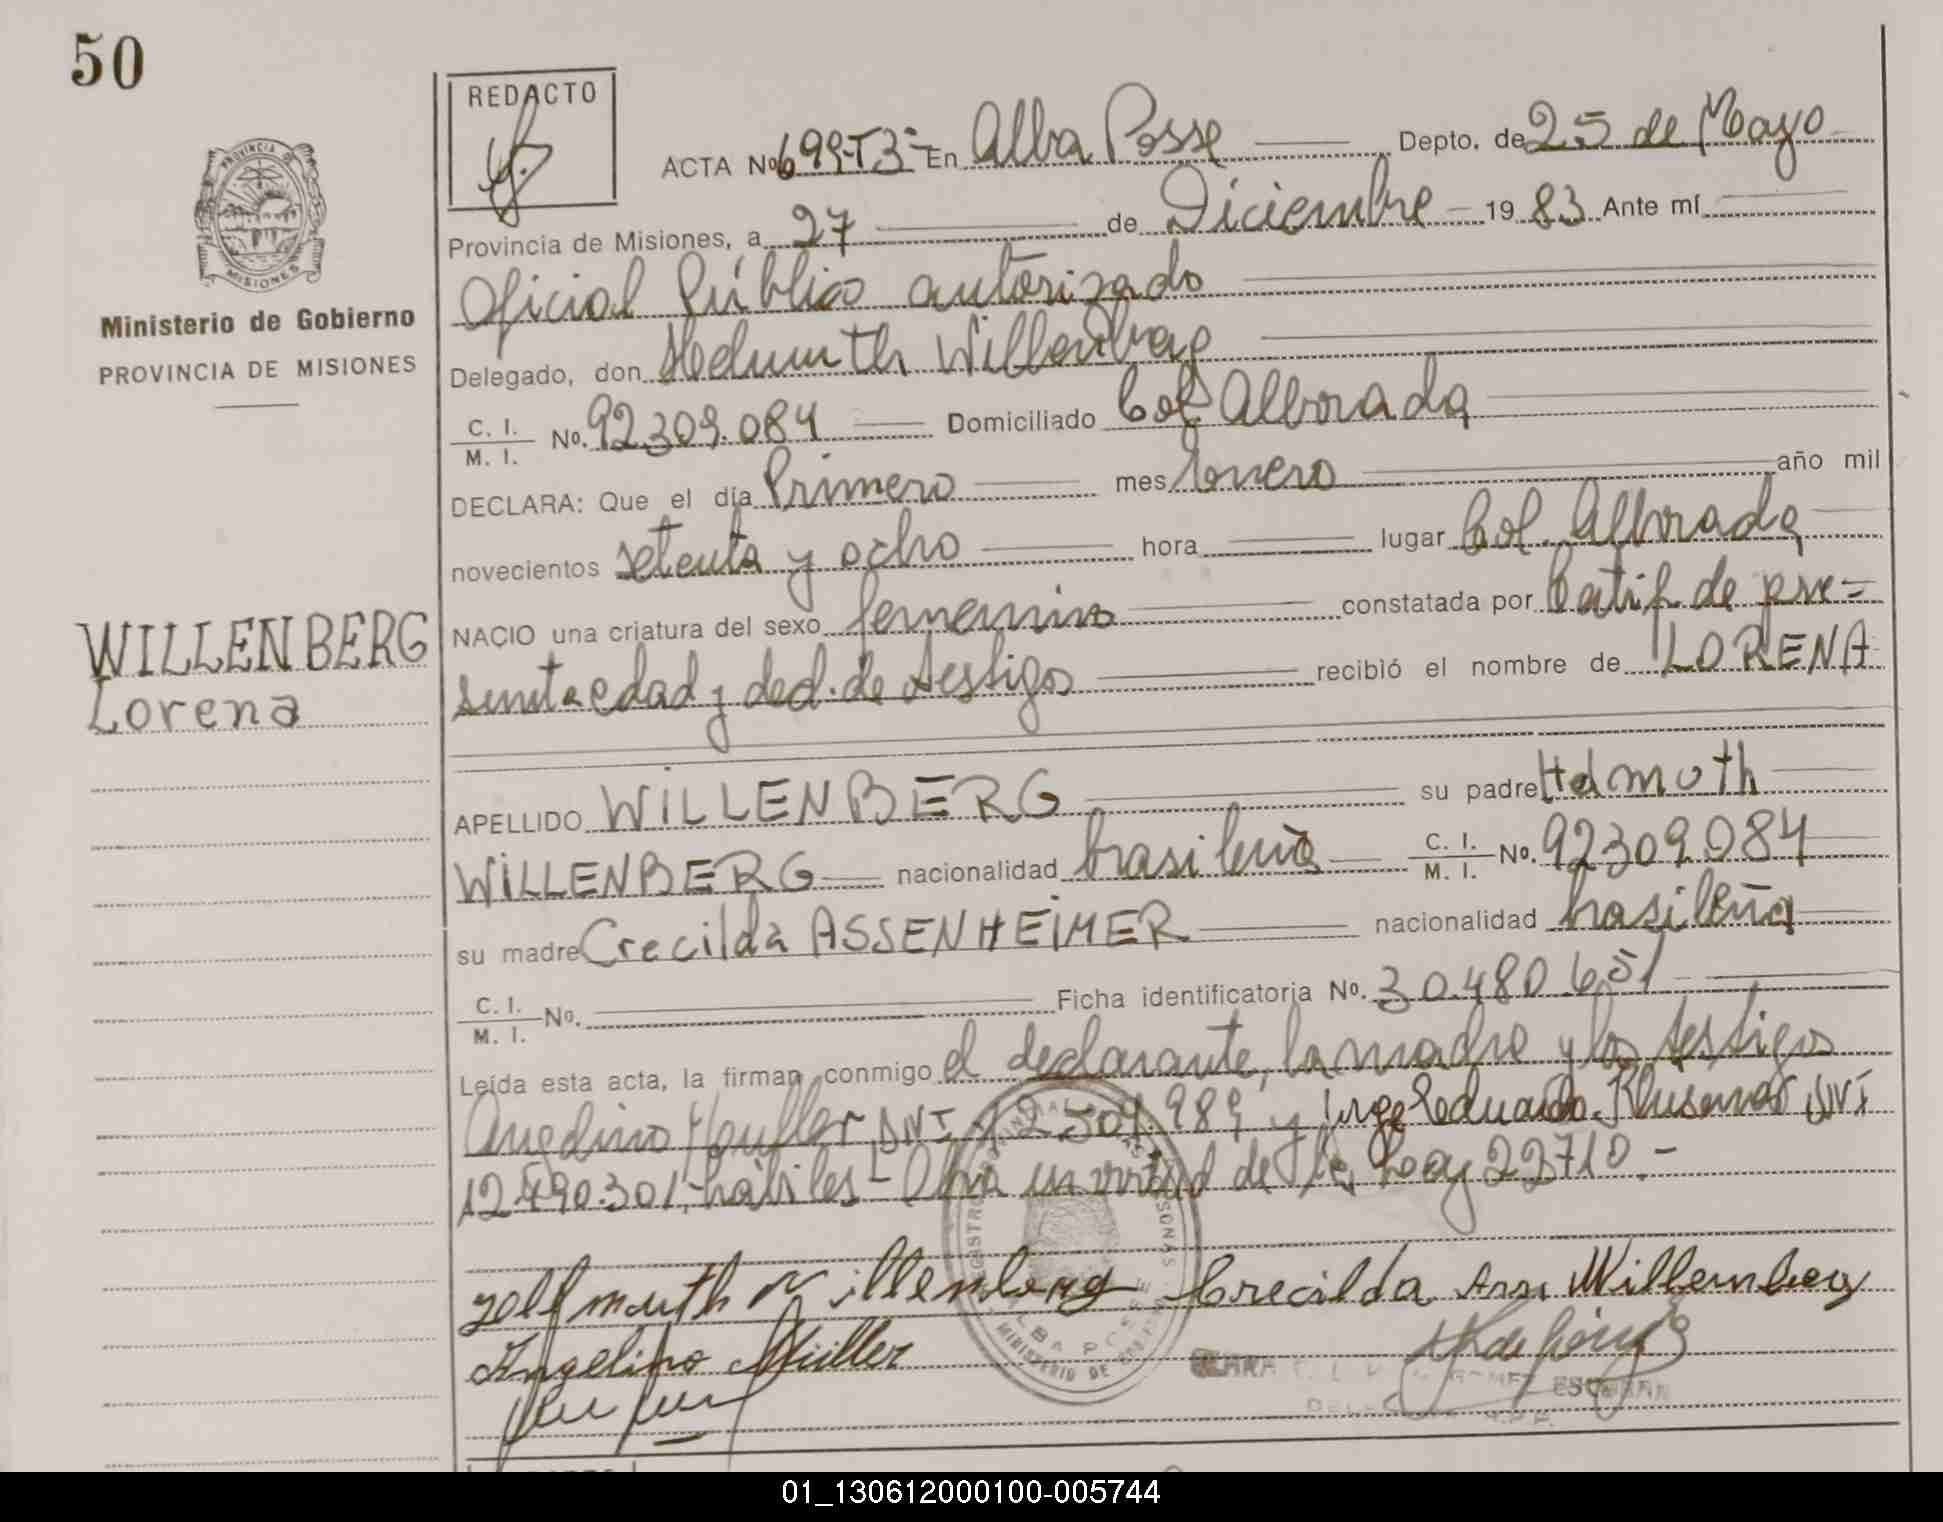 50
REDACTO
ACTA No. 699-T3- En Alba Posse Depto. de 25 de Mayo
PROVINCIA DE
MISIONES
Provincia de Misiones, a 27 de Diciembre 19 83 Ante mí
Oficial Público autorizado
Ministerio de Gobierno
PROVINCIA DE MISIONES
Delegado, don Helmuth Willenberg
C. I.
M. I. No. 92.309.084 Domiciliado Col Alborada
DECLARA: Que el día Primero mes Enero año mil
novecientos setenta y ocho hora lugar Col. Alborada
WILLENBERG
Lorena
NACIO una criatura del sexo femenino constatada por Certif. de pre=
sunta edad y decl. de testigos recibió el nombre de LORENA
APELLIDO WILLENBERG su padre Helmuth
WILLENBERG nacionalidad brasileña C. I.
M. I. No. 92309.084
su madre Crecilda ASSENHEIMER nacionalidad brasileña
C. I.
M. I. No. Ficha identificatoria No. 30.480.651
Leída esta acta, la firman conmigo el declarante, la madre y los testigos
Angelino Muller DNI 12.509.989 y Jorge Eduardo DNI
12.490.301, hábiles- de Ley 22710.-
Willenberg Crecilda Ass. Willemberg
Angelino Müller
ALBA POSSE
MINISTERIO DE
01_130612000100-005744